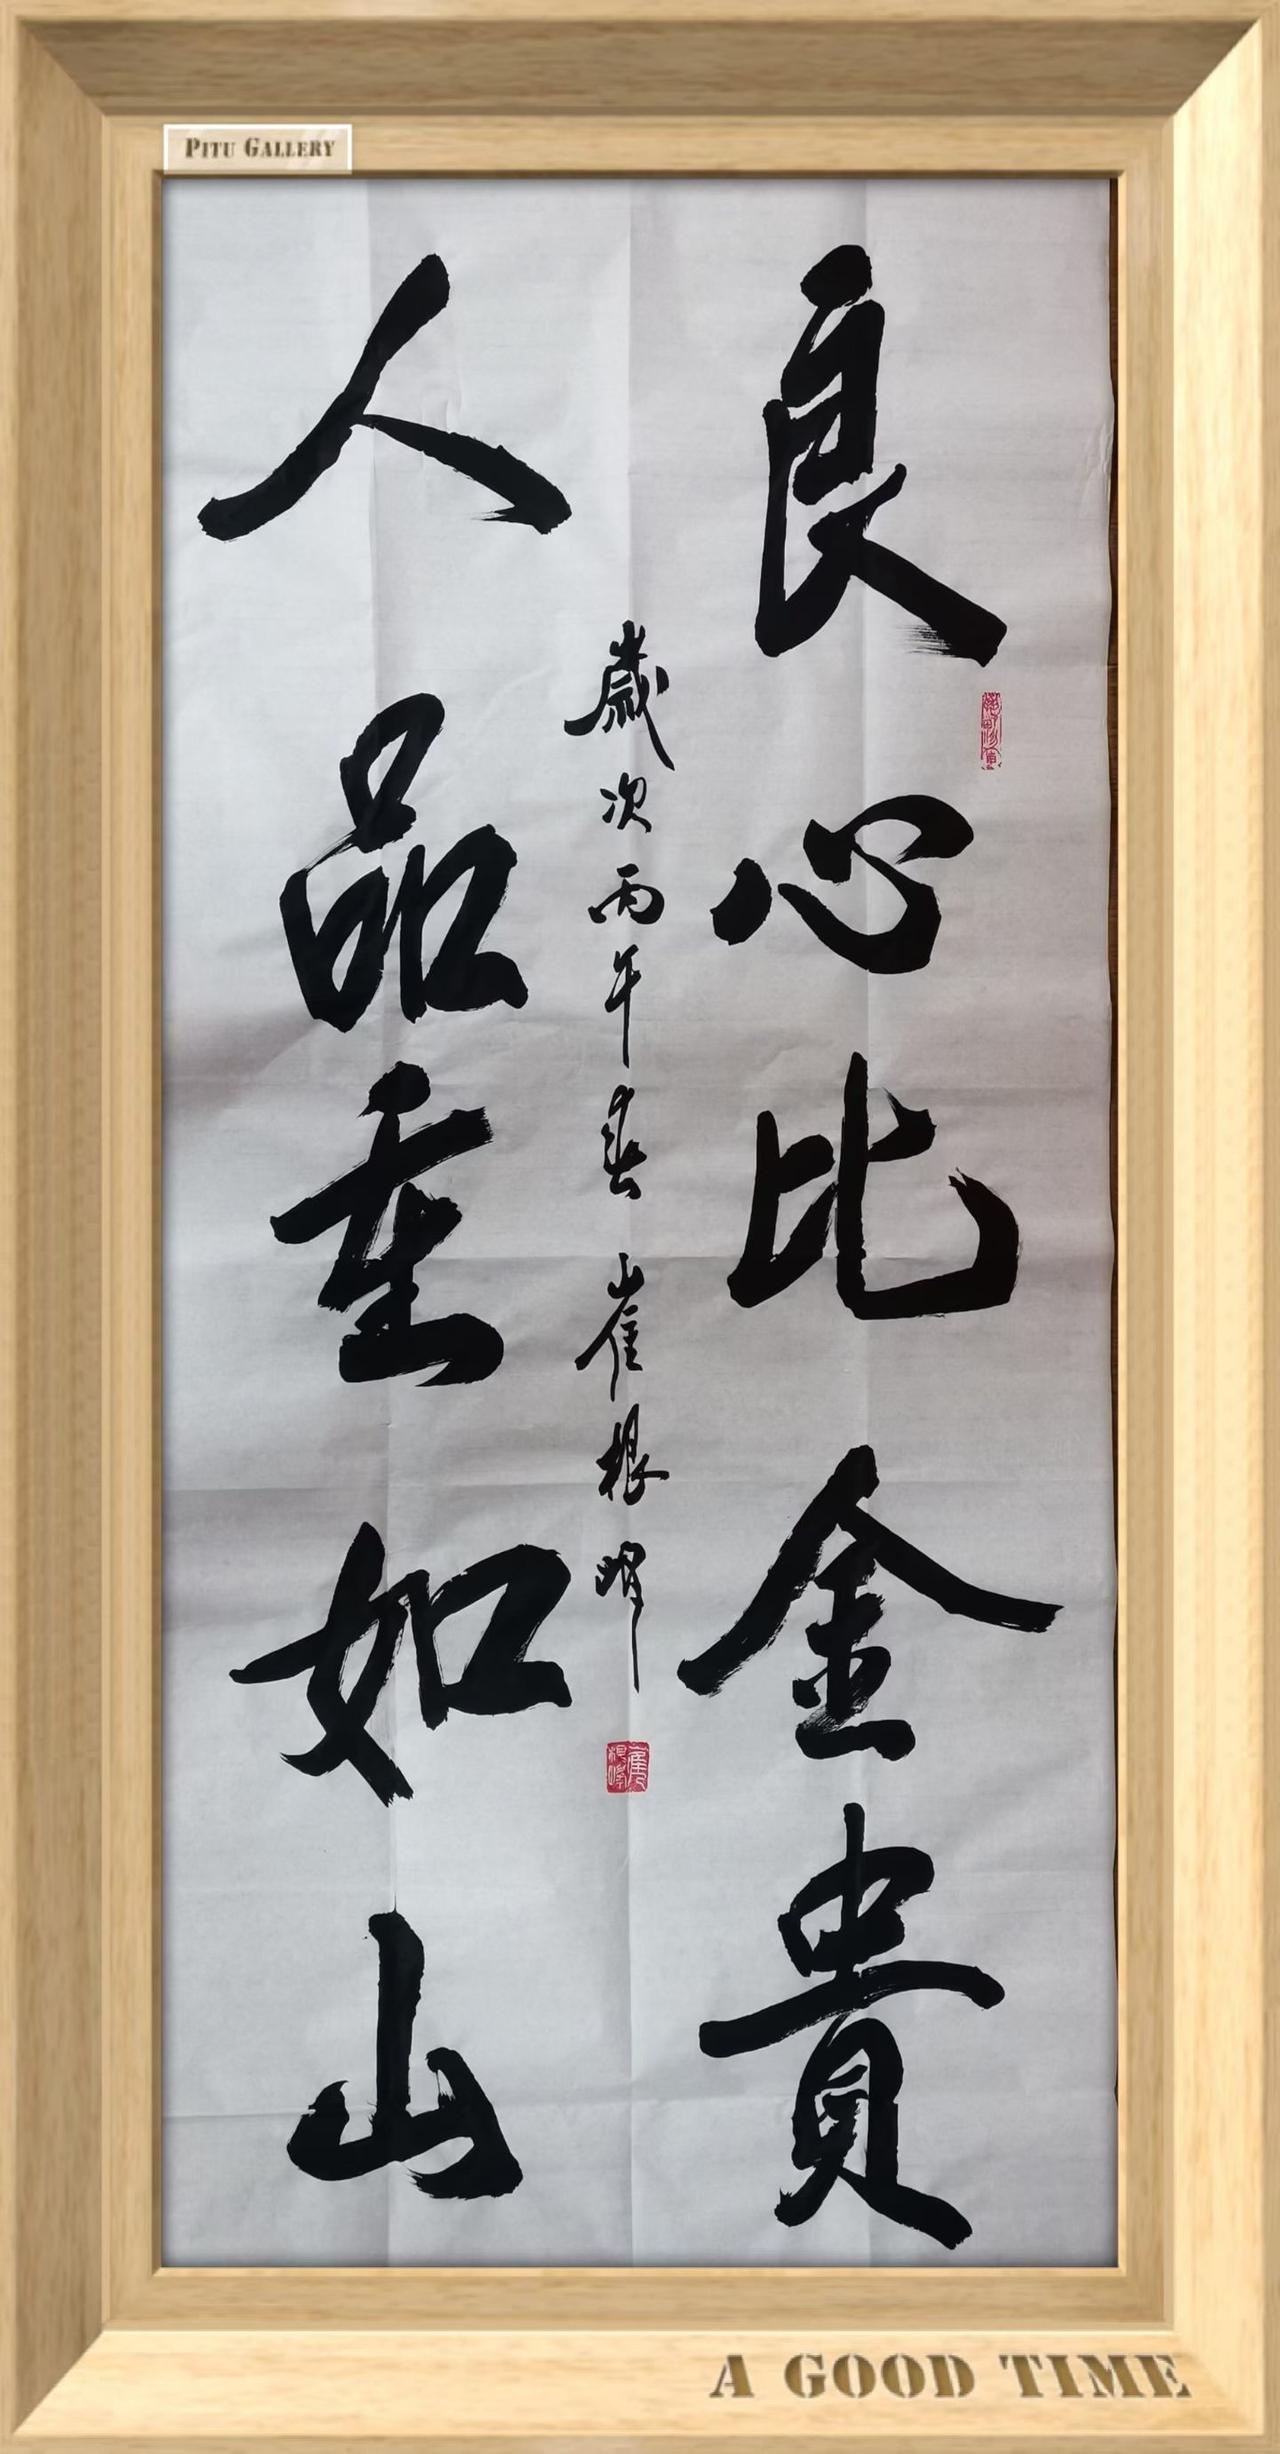 PITU GALLERY
良心比金貴
人品重如山
歲次丙午春 崔根明
A GOOD TIME